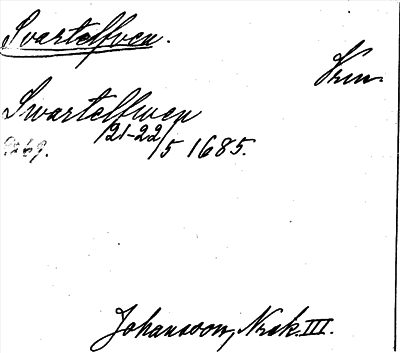 Svartelfven.
Hrm.
Swartelfwen
21-22/5 1685.
Johansson, Nrsk. III.